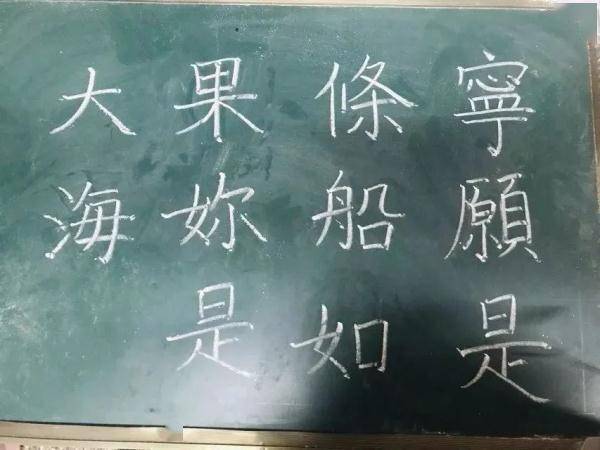 寧願是
條船如
果妳是
大海